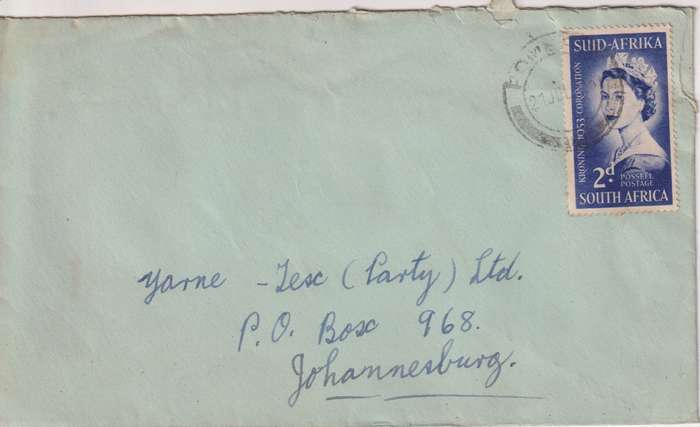 SUID-AFRIKA
KRONING 1953 CORONATION
2d.
POSSEËL
POSTAGE
SOUTH AFRICA
Yarne - Tex (Party) Ltd.
P.O. Box 968.
Johannesburg.